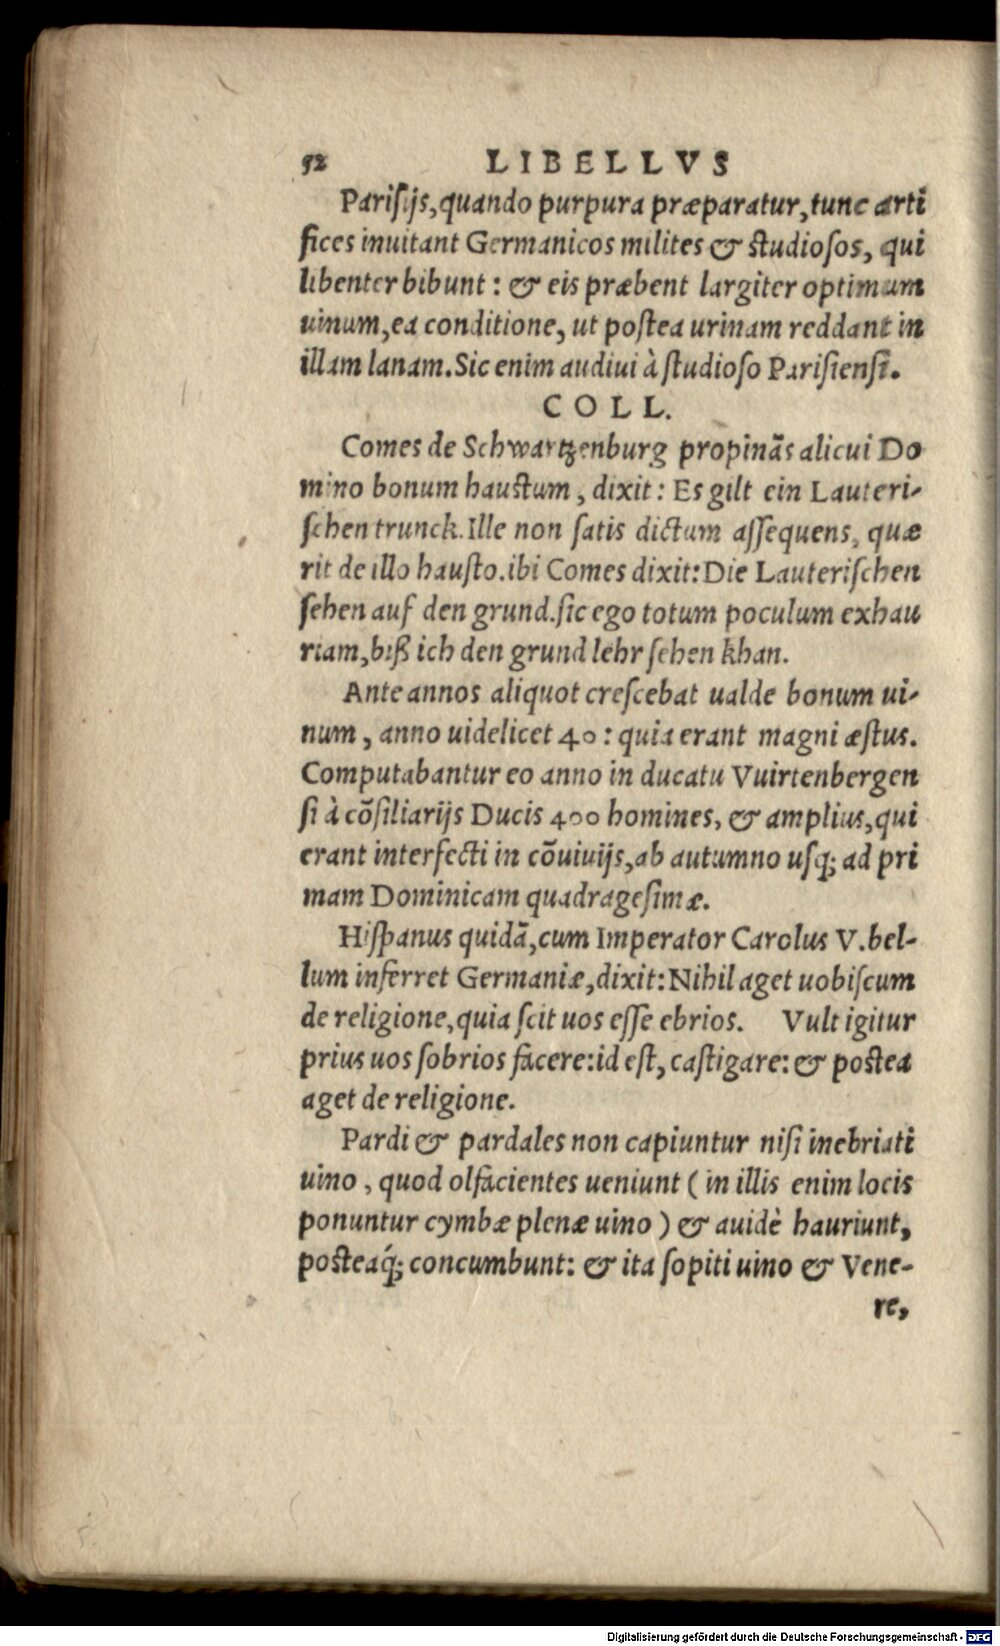 52 LIBELLVS
Parisijs, quando purpura præparatur, tunc arti
fices inuitant Germanicos milites & studiosos, qui
libenter bibunt: & eis præbent largiter optimum
uinum, ea conditione, ut postea urinam reddant in
illam lanam. Sic enim audiui à studioso Parisiensi.
COLL.
Comes de Schwartzenburg propinãs alicui Do
mino bonum haustum, dixit: Es gilt ein Lauteri-
schen trunck. Ille non satis dictum assequens, quæ
rit de illo hausto. ibi Comes dixit: Die Lauterischen
sehen auf den grund. sic ego totum poculum exhau
riam, biß ich den grund lehr sehen khan.
Ante annos aliquot crescebat ualde bonum ui-
num, anno uidelicet 40: quia erant magni æstus.
Computabantur eo anno in ducatu Vuirtenbergen
si à cõsiliarijs Ducis 400 homines, & amplius, qui
erant interfecti in cõuiuijs, ab autumno usq; ad pri
mam Dominicam quadragesimæ.
Hispanus quidã, cum Imperator Carolus V. bel-
lum inferret Germaniæ, dixit: Nihil aget uobiscum
de religione, quia scit uos esse ebrios. Vult igitur
prius uos sobrios facere: id est, castigare: & postea
aget de religione.
Pardi & pardales non capiuntur nisi inebriati
uino, quod olfacientes ueniunt (in illis enim locis
ponuntur cymbæ plenæ uino) & auidè hauriunt,
posteaq́; concumbunt: & ita sopiti uino & Vene-
re,
Digitalisierung gefördert durch die Deutsche Forschungsgemeinschaft - DFG